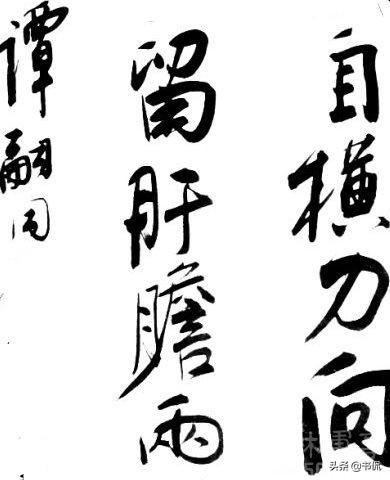 自横刀向
留肝膽兩
谭嗣同
头条@书侃